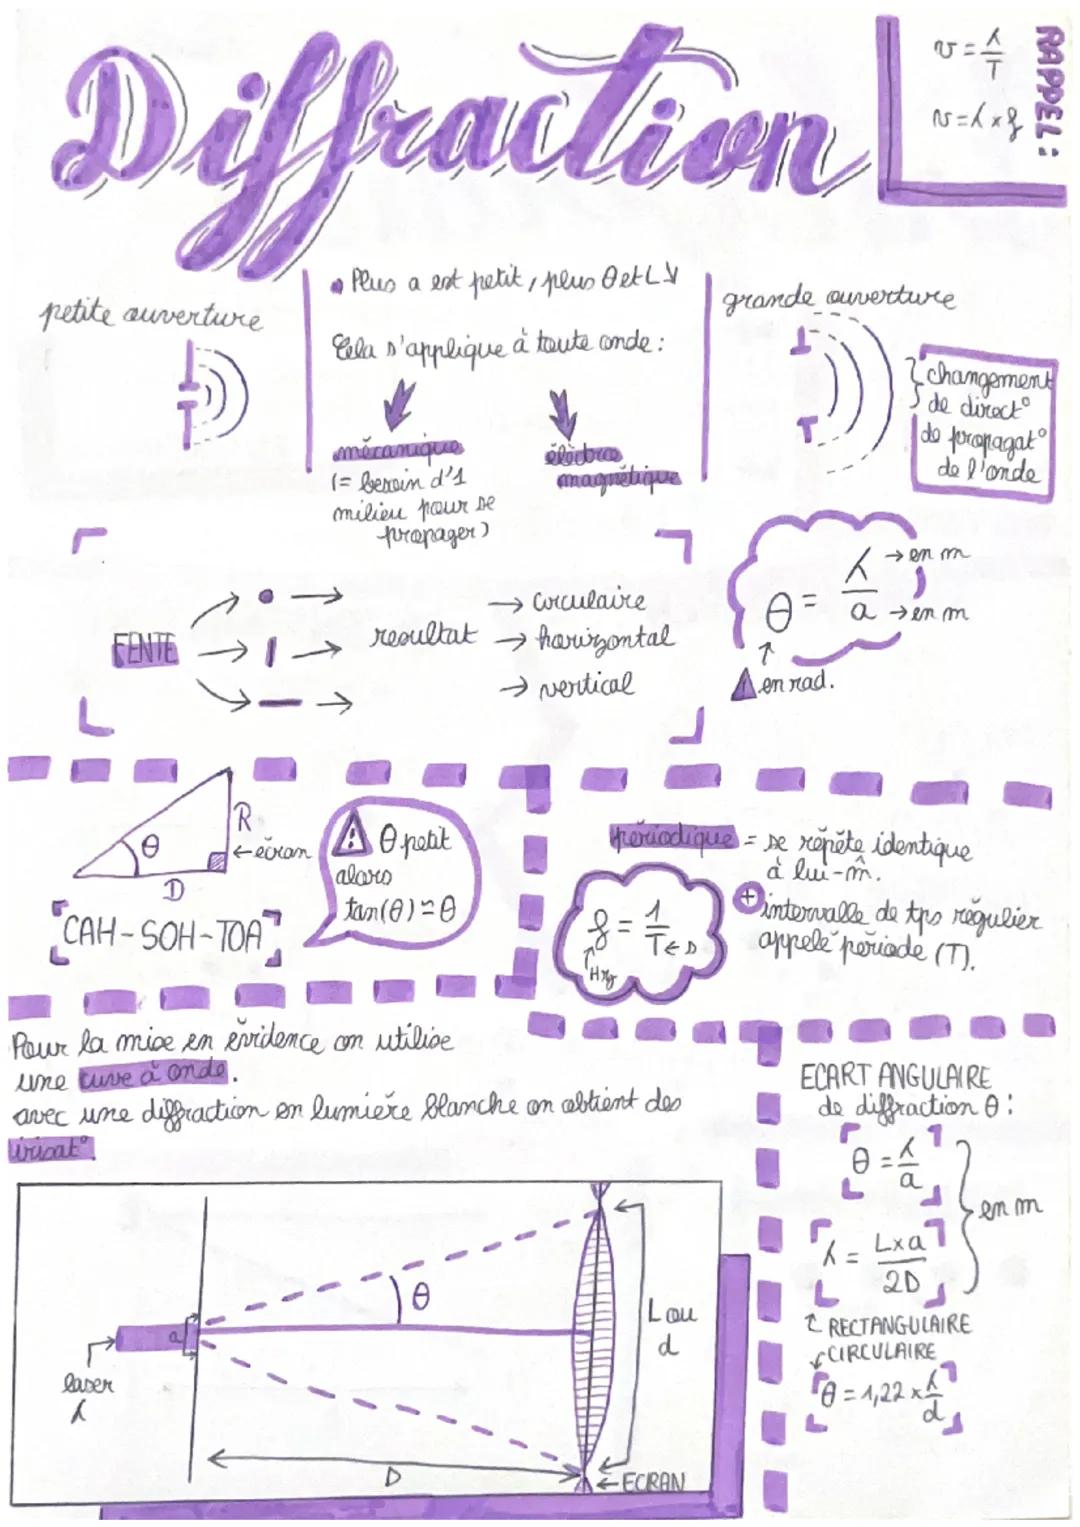 Diffraction
RAPPEL :
v = λ/T
v = λ × f
petite ouverture
• Plus a est petit, plus θ et L ↘
Cela s'applique à toute onde :
mécanique
(= besoin d'1
milieu pour se
propager)
électro
magnétique
grande ouverture
changement
de direct°
de propagat°
de l'onde
FENTE
resultat
→ circulaire
→ horizontal
→ vertical
θ = λ/a
→ en m
→ en m
en rad.
θ
R
← écran
D
CAH-SOH-TOA
! θ petit
alors
tan(θ) ≃ θ
périodique = se répète identique
à lui-m̂.
+ intervalle de tps régulier
appelé période (T).
f = 1/T ← s
↑ Hz
Pour la mise en évidence on utilise
une cuve à onde.
avec une diffraction en lumière blanche on obtient des
irisat°.
laser
λ
a
θ
D
L ou
d
← ECRAN
ECART ANGULAIRE
de diffraction θ :
θ = λ/a
en m
λ = L×a/2D
RECTANGULAIRE
CIRCULAIRE
θ = 1,22 × λ/d